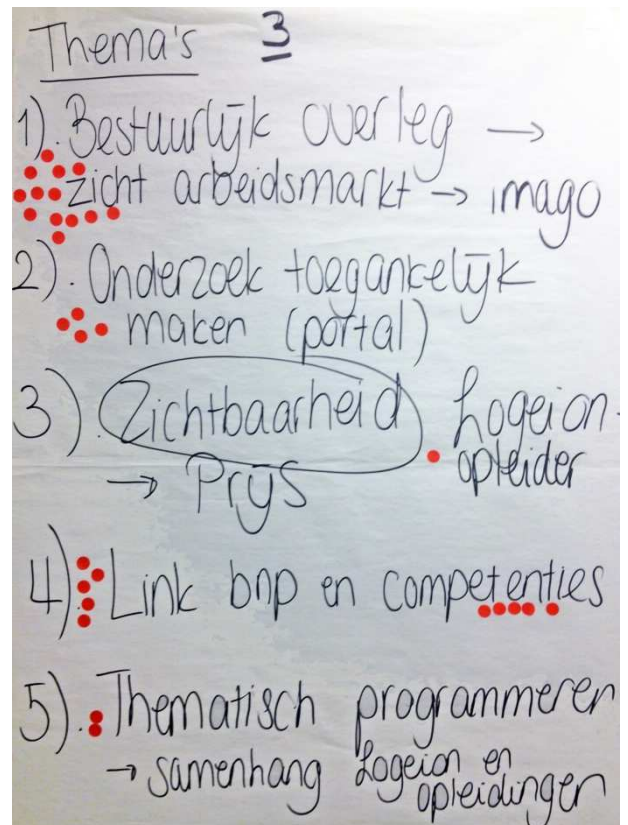 Thema's 3
1). Bestuurlijk overleg →
zicht arbeidsmarkt → imago
2). Onderzoek toegankelijk
maken (portal)
3). Zichtbaarheid Logeion-
opleider
→ Prijs
4). Link bnp en competenties
5). Thematisch programmeren
→ samenhang Logeion en
opleidingen